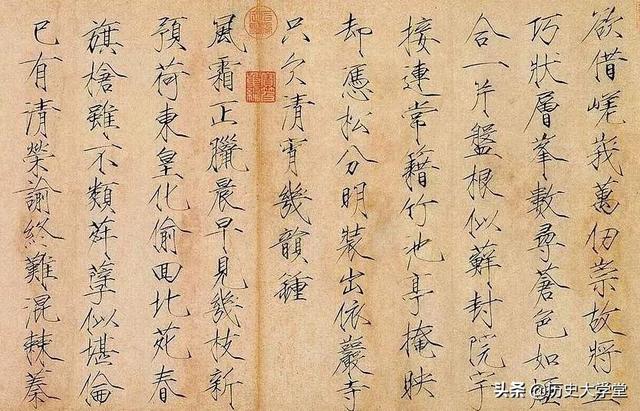 欲借嵯峩萬仞崇故將
巧狀層峯數尋蒼色如
合一片盤根似蘚封院宇
接連常籍竹池亭掩映
却憑松分明裝出依巖寺
只欠清宵幾韻鍾
風霜正臘晨早見幾枝新
預荷東皇化偷回北苑春
旗槍雖不類荈孽似堪倫
已有清榮諭終難混棘蓁
头条 @历史大学堂